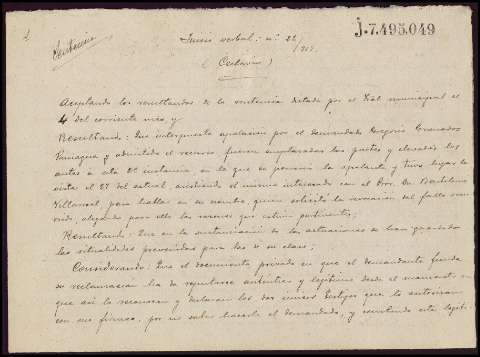 J.7.495.049
Sentencia
Juicio verbal: nº 22/
Aceptando los resultandos de la sentencia dictada por el Tribal municipal el
4 del corriente mes y
Resultando: Que interpuesta apelacion por el demandado Gregorio Granados
y admitido el recurso, fueron emplazadas las partes y elevados los
autos a esta 2ª instancia en la que se personó la apelante y tuvo lugar la
vista el 27 del actual, asistiendo el mismo interesado con el Dn. Bartolomé
Villarroel, para hablar en su nombre, quien solicitó la revocacion del fallo
alegando para ello las razones que estimó pertinentes;
Resultando: Que en la sustanciacion de las actuaciones se han guardado
las ritualidades prevenidas para las de su clase;
Considerando: Que el documento privado en que el demandante funda
su reclamacion ha de reputarse autentico y legítimo desde el momento en
que asi lo reconocen y declaran los dos unicos testigos que lo autorizan
con sus firmas, por no saber hacerlo el demandado, y